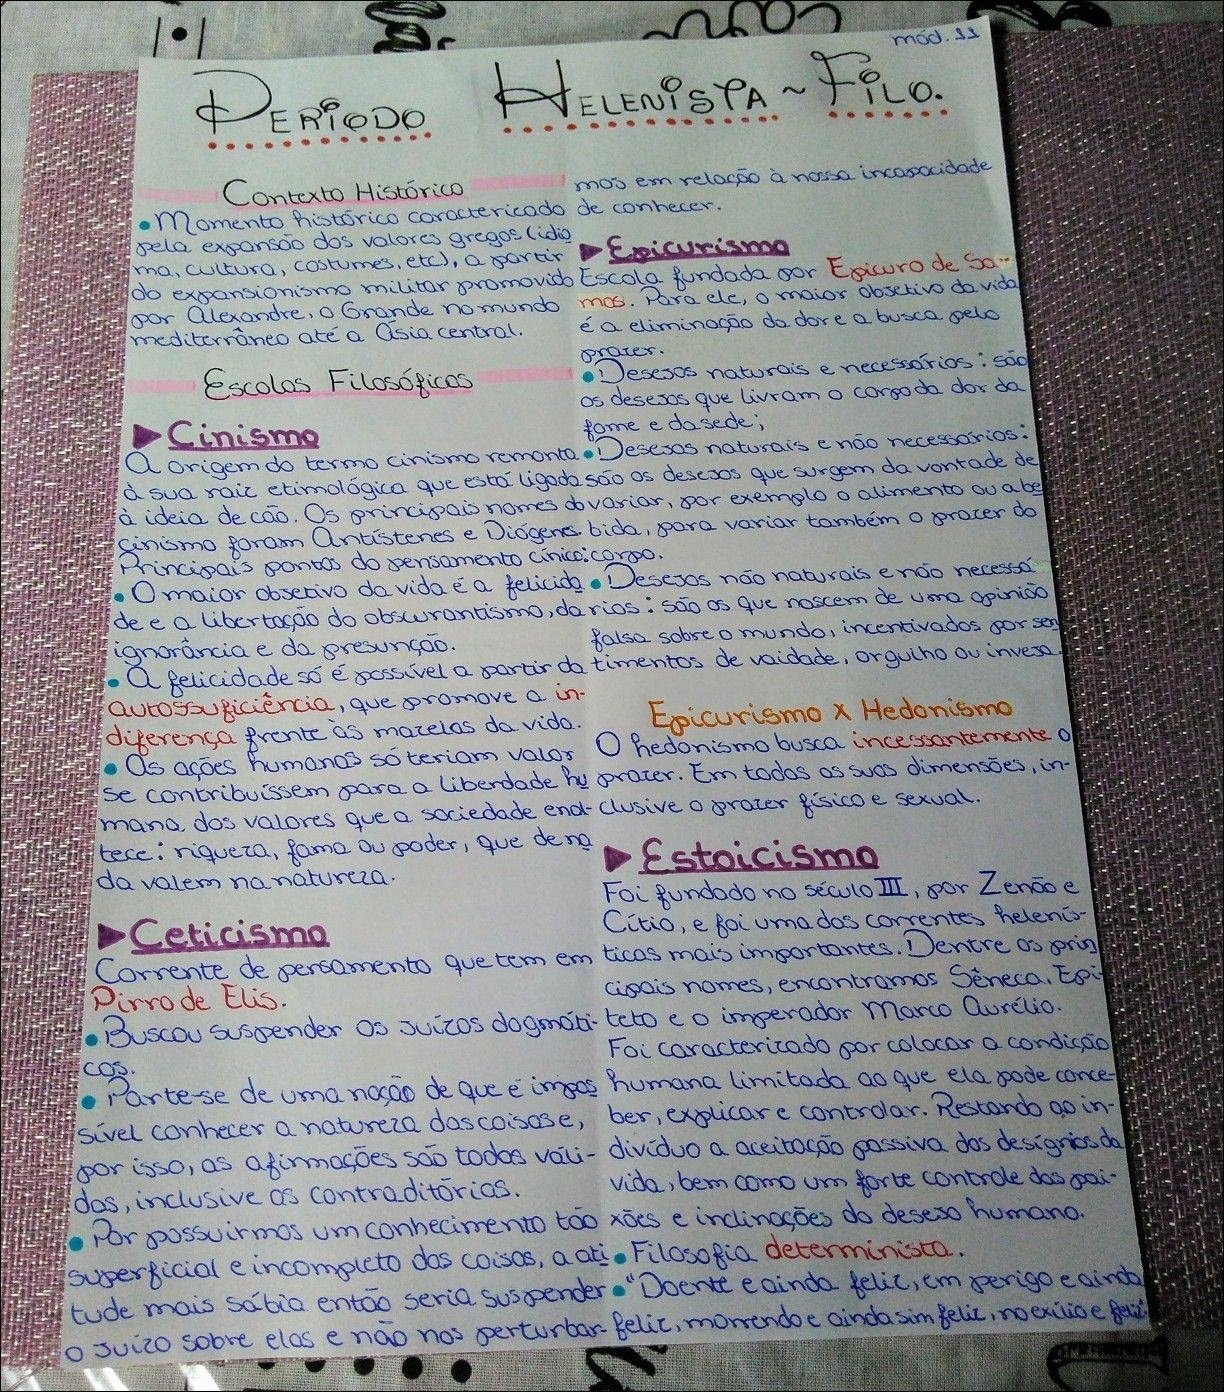 mód. 11
Período Helenista ~ Filo.
Contexto Histórico
• Momento histórico caractericado
pela expansão dos valores gregos (idio
ma, cultura, costumes, etc), a partir
do expansionismo militar promovido
por Alexandre, o Grande no mundo
mediterrâneo até a Ásia central.
Escolas Filosóficas
▶ Cinismo
A origem do termo cinismo remonta
à sua raiz etimológica que está ligada
à ideia de cão. Os principais nomes do
cinismo foram Antístenes e Diógenes.
Principais pontos do pensamento cínico:
• O maior objetivo da vida é a felicida
de e a libertação do obscurantismo, da
ignorância e da presunção.
• A felicidade só é possível a partir da
autossuficiência, que promove a in-
diferença frente às mazelas da vida.
• As ações humanas só teriam valor
se contribuíssem para a liberdade hu
mana dos valores que a sociedade enal-
tece: riqueza, fama ou poder, que de na
da valem na natureza.
▶ Ceticismo
Corrente de pensamento que tem em
Pirro de Elis.
• Buscou suspender os juízos dogmáti-
cos.
• Parte-se de uma noção de que é impos
sível conhecer a natureza das coisas e,
por isso, as afirmações são todas váli-
das, inclusive as contraditórias.
• Por possuirmos um conhecimento tão
superficial e incompleto das coisas, a ati
tude mais sábia então seria suspender
o juízo sobre elas e não nos perturbar-
mos em relação à nossa incapacidade
de conhecer.
▶ Epicurismo
Escola fundada por Epicuro de Sa-
mos. Para ele, o maior objetivo da vida
é a eliminação da dor e a busca pelo
prazer.
• Desejos naturais e necessários: são
os desejos que livram o corpo da dor da
fome e da sede;
• Desejos naturais e não necessários:
são os desejos que surgem da vontade de
variar, por exemplo o alimento ou a be
bida, para variar também o prazer do
corpo.
• Desejos não naturais e não necessá-
rios: são os que nascem de uma opinião
falsa sobre o mundo, incentivados por sen
timentos de vaidade, orgulho ou inveja.
Epicurismo x Hedonismo
O hedonismo busca incessantemente o
prazer. Em todas as suas dimensões, in-
clusive o prazer físico e sexual.
▶ Estoicismo
Foi fundado no século III, por Zenão e
Cítio, e foi uma das correntes helenís-
ticas mais importantes. Dentre os prin
cipais nomes, encontramos Sêneca, Epi-
teto e o imperador Marco Aurélio.
Foi caracterizado por colocar a condição
humana limitada ao que ela pode conce-
ber, explicar e controlar. Restando ao in-
divíduo a aceitação passiva dos desígnios da
vida, bem como um forte controle das pai-
xões e inclinações do desejo humano.
• Filosofia determinista.
• "Doente e ainda feliz, em perigo e ainda
feliz, morrendo e ainda sim feliz, no exílio e feliz"